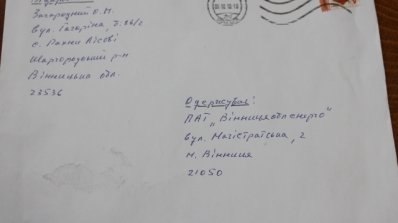 Загородний О.М.
вул. Гагаріна, б. 26/2
с. Рахни Лісові
Шаргородський р-н
Вінницька обл.
23536
Одержувач:
ПАТ „Вінницяобленерго"
вул. Магістратська, 2
м. Вінниця
21050